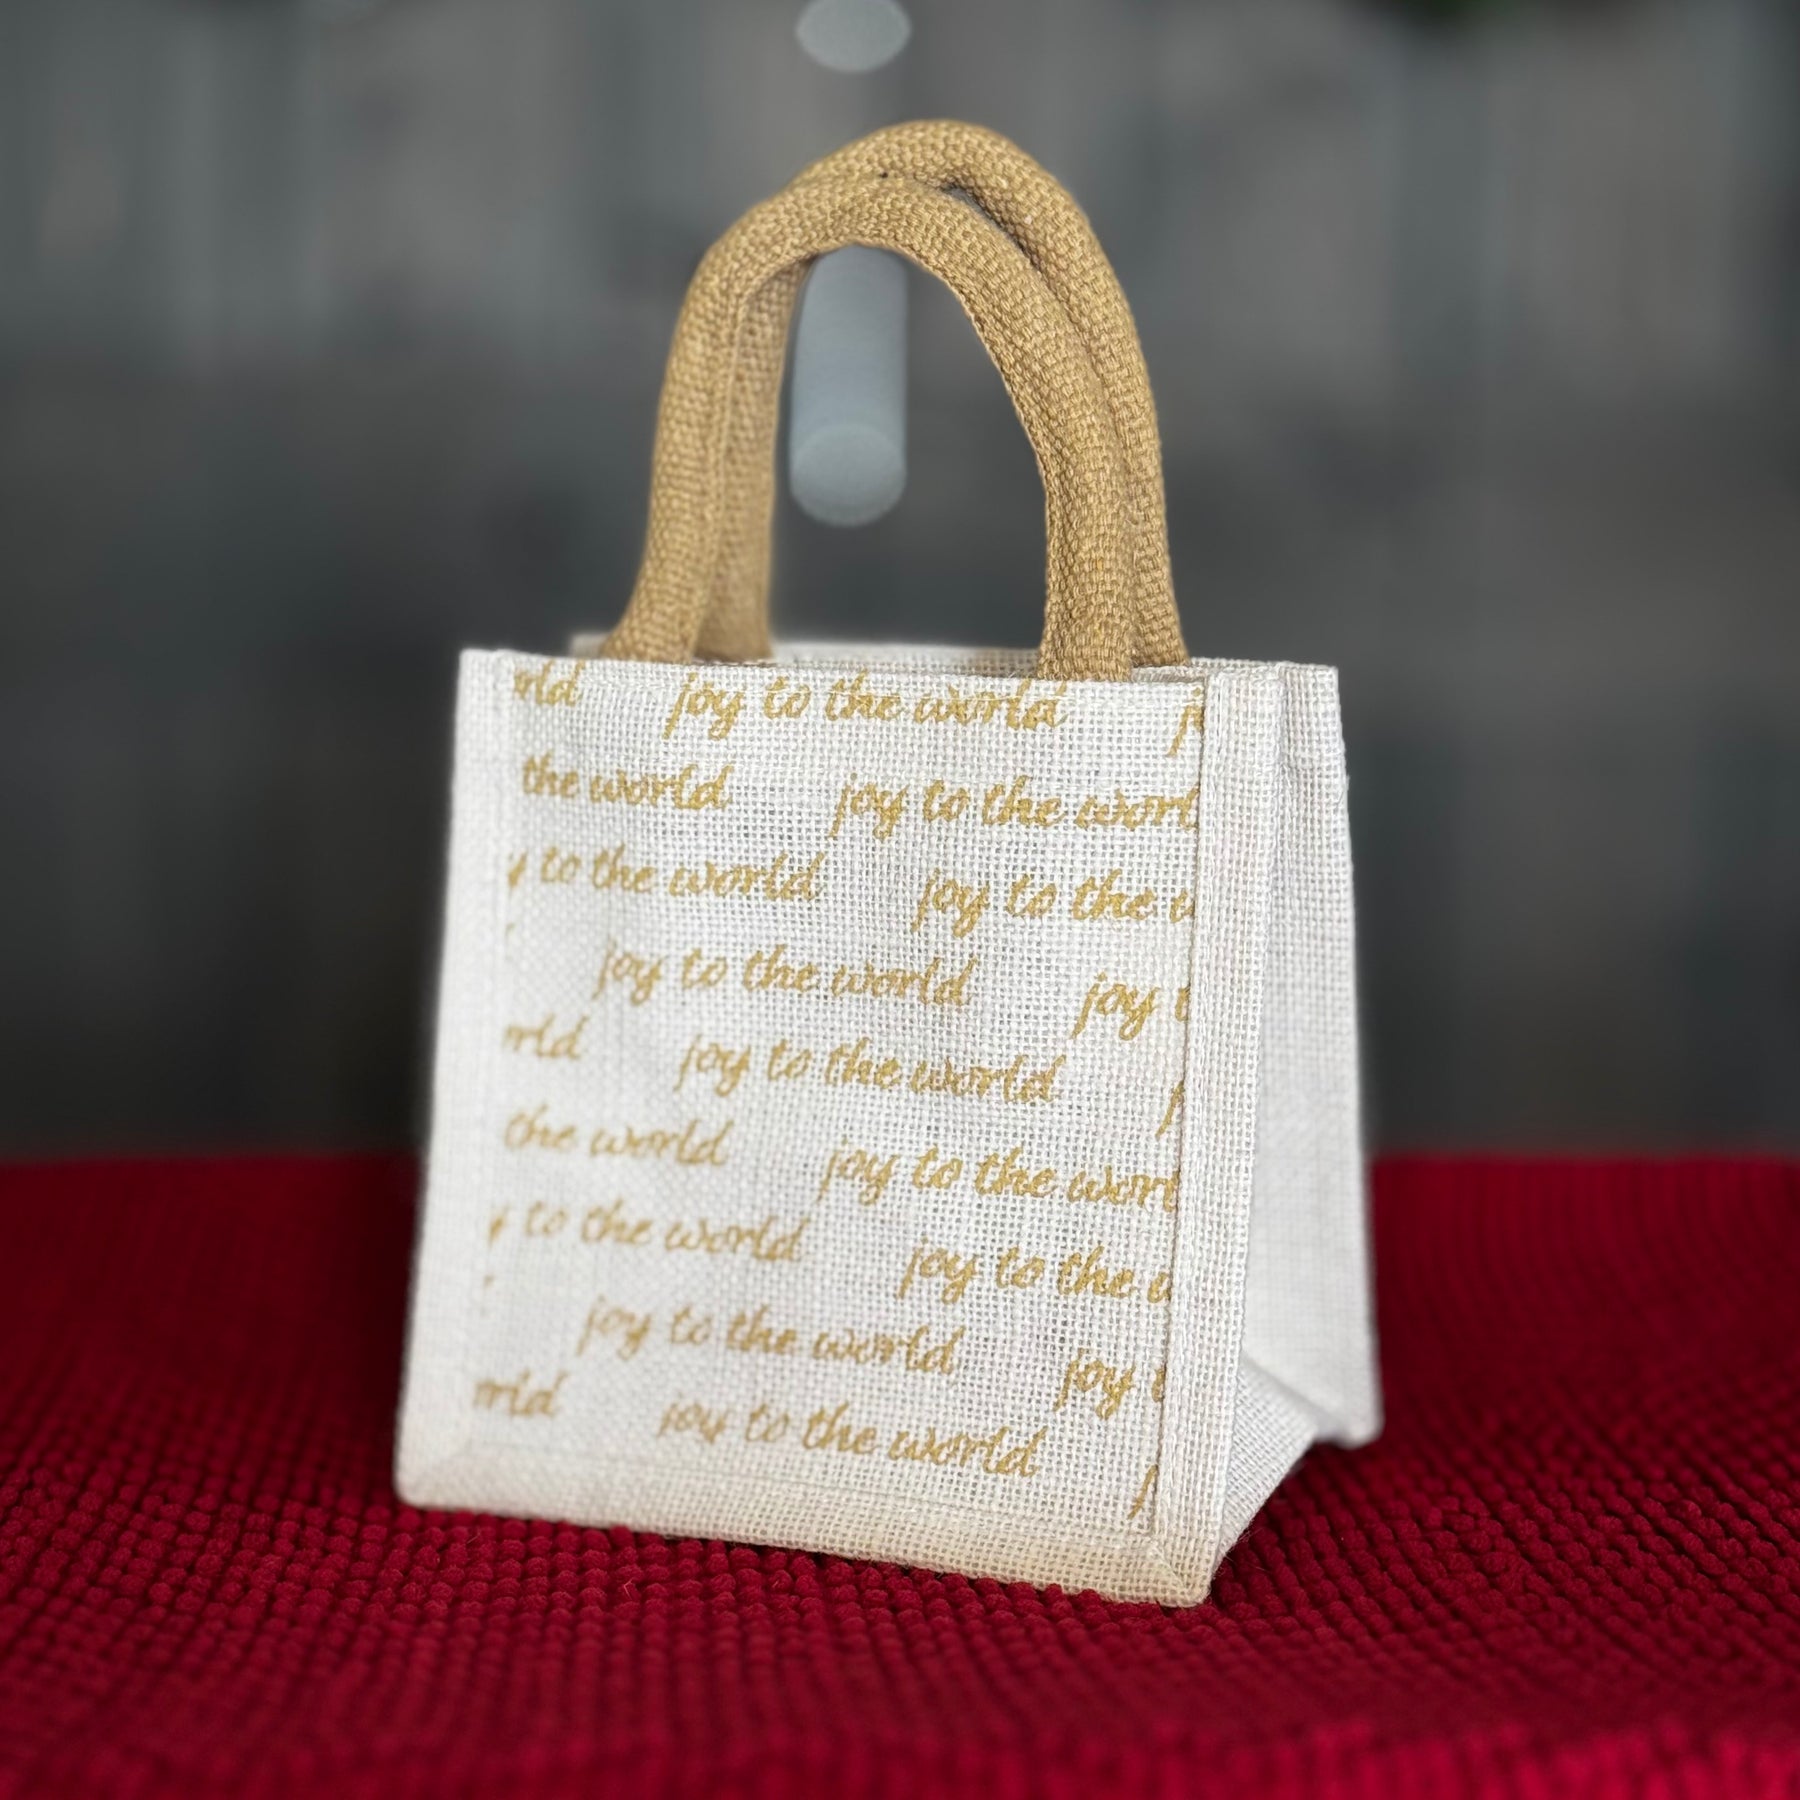 rld joy to the world j
the world joy to the worl
y to the world joy to the w
joy to the world joy t
rld joy to the world j
the world joy to the worl
y to the world joy to the w
joy to the world joy t
rld joy to the world j